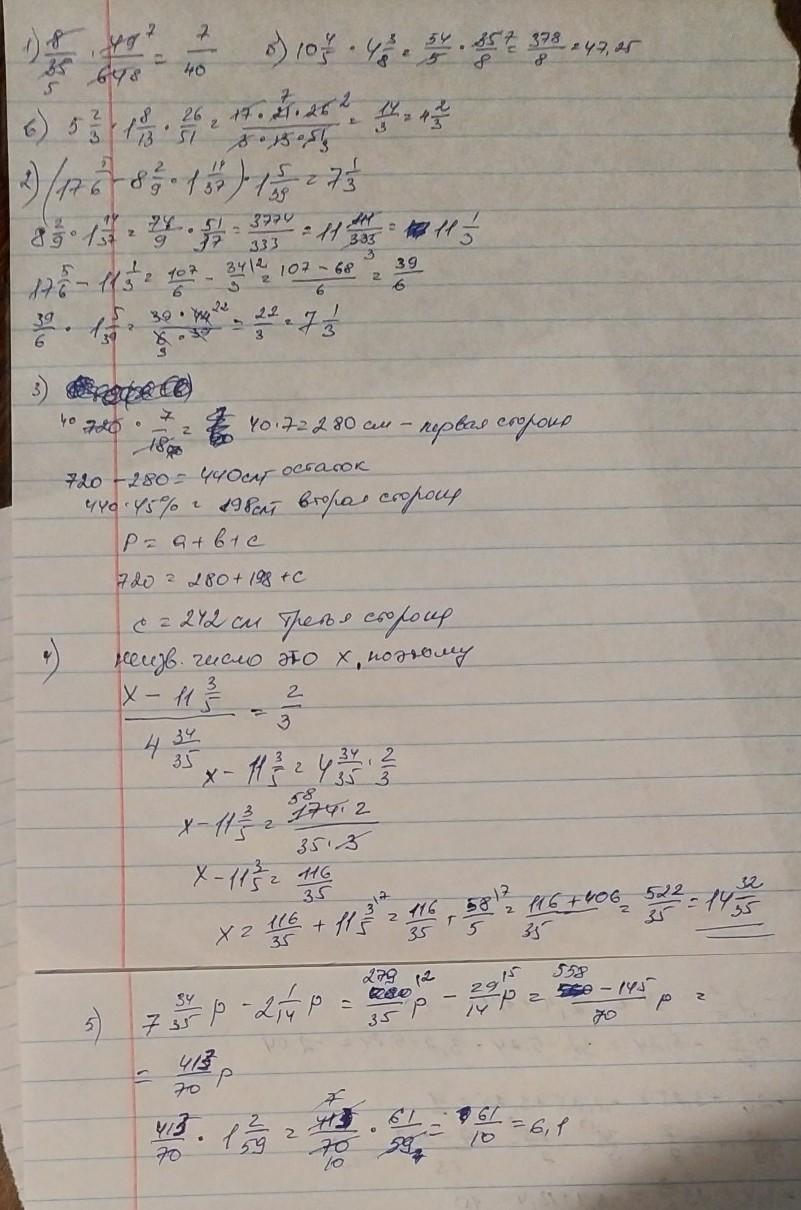 1) 8/35 · 49/648 = 7/40   б) 10 4/5 · 4 3/8 = 54/5 · 35/8 = 378/8 = 47,25
в) 5 2/3 · 1 8/13 · 26/51 = 17·21·26/3·13·51 = 14/3 = 4 2/3
2) (17 5/6 - 8 2/9 · 1 14/37) · 1 5/39 = 7 1/3
8 2/9 · 1 14/37 = 74/9 · 51/37 = 3774/333 = 11 111/333 = 11 1/3
17 5/6 - 11 1/3 = 107/6 - 34/3 \2 = 107 - 68/6 = 39/6
39/6 · 1 5/39 = 39 · 44/6 · 39 = 22/3 = 7 1/3
3)
720 · 7/18 = 40·7 = 280 см - первая сторона
720 - 280 = 440 см остаток
440·45% = 198 см вторая сторона
P = a + b + c
720 = 280 + 198 + c
c = 242 см третья сторона
4) неизв. число это x, поэтому
x - 11 3/5 / 4 34/35 = 2/3
x - 11 3/5 = 4 34/35 · 2/3
x - 11 3/5 = 174·2/35·3
x - 11 3/5 = 116/35
x = 116/35 + 11 3/5 \7 = 116/35 + 58/5 \7 = 116 + 406/35 = 522/35 = 14 32/35
5) 7 34/35 p - 2 1/14 p = 279/35 \2 p - 29/14 \5 p = 558 - 145/70 p =
= 413/70 p
413/70 · 1 2/59 = 413/70 · 61/59 = 61/10 = 6,1